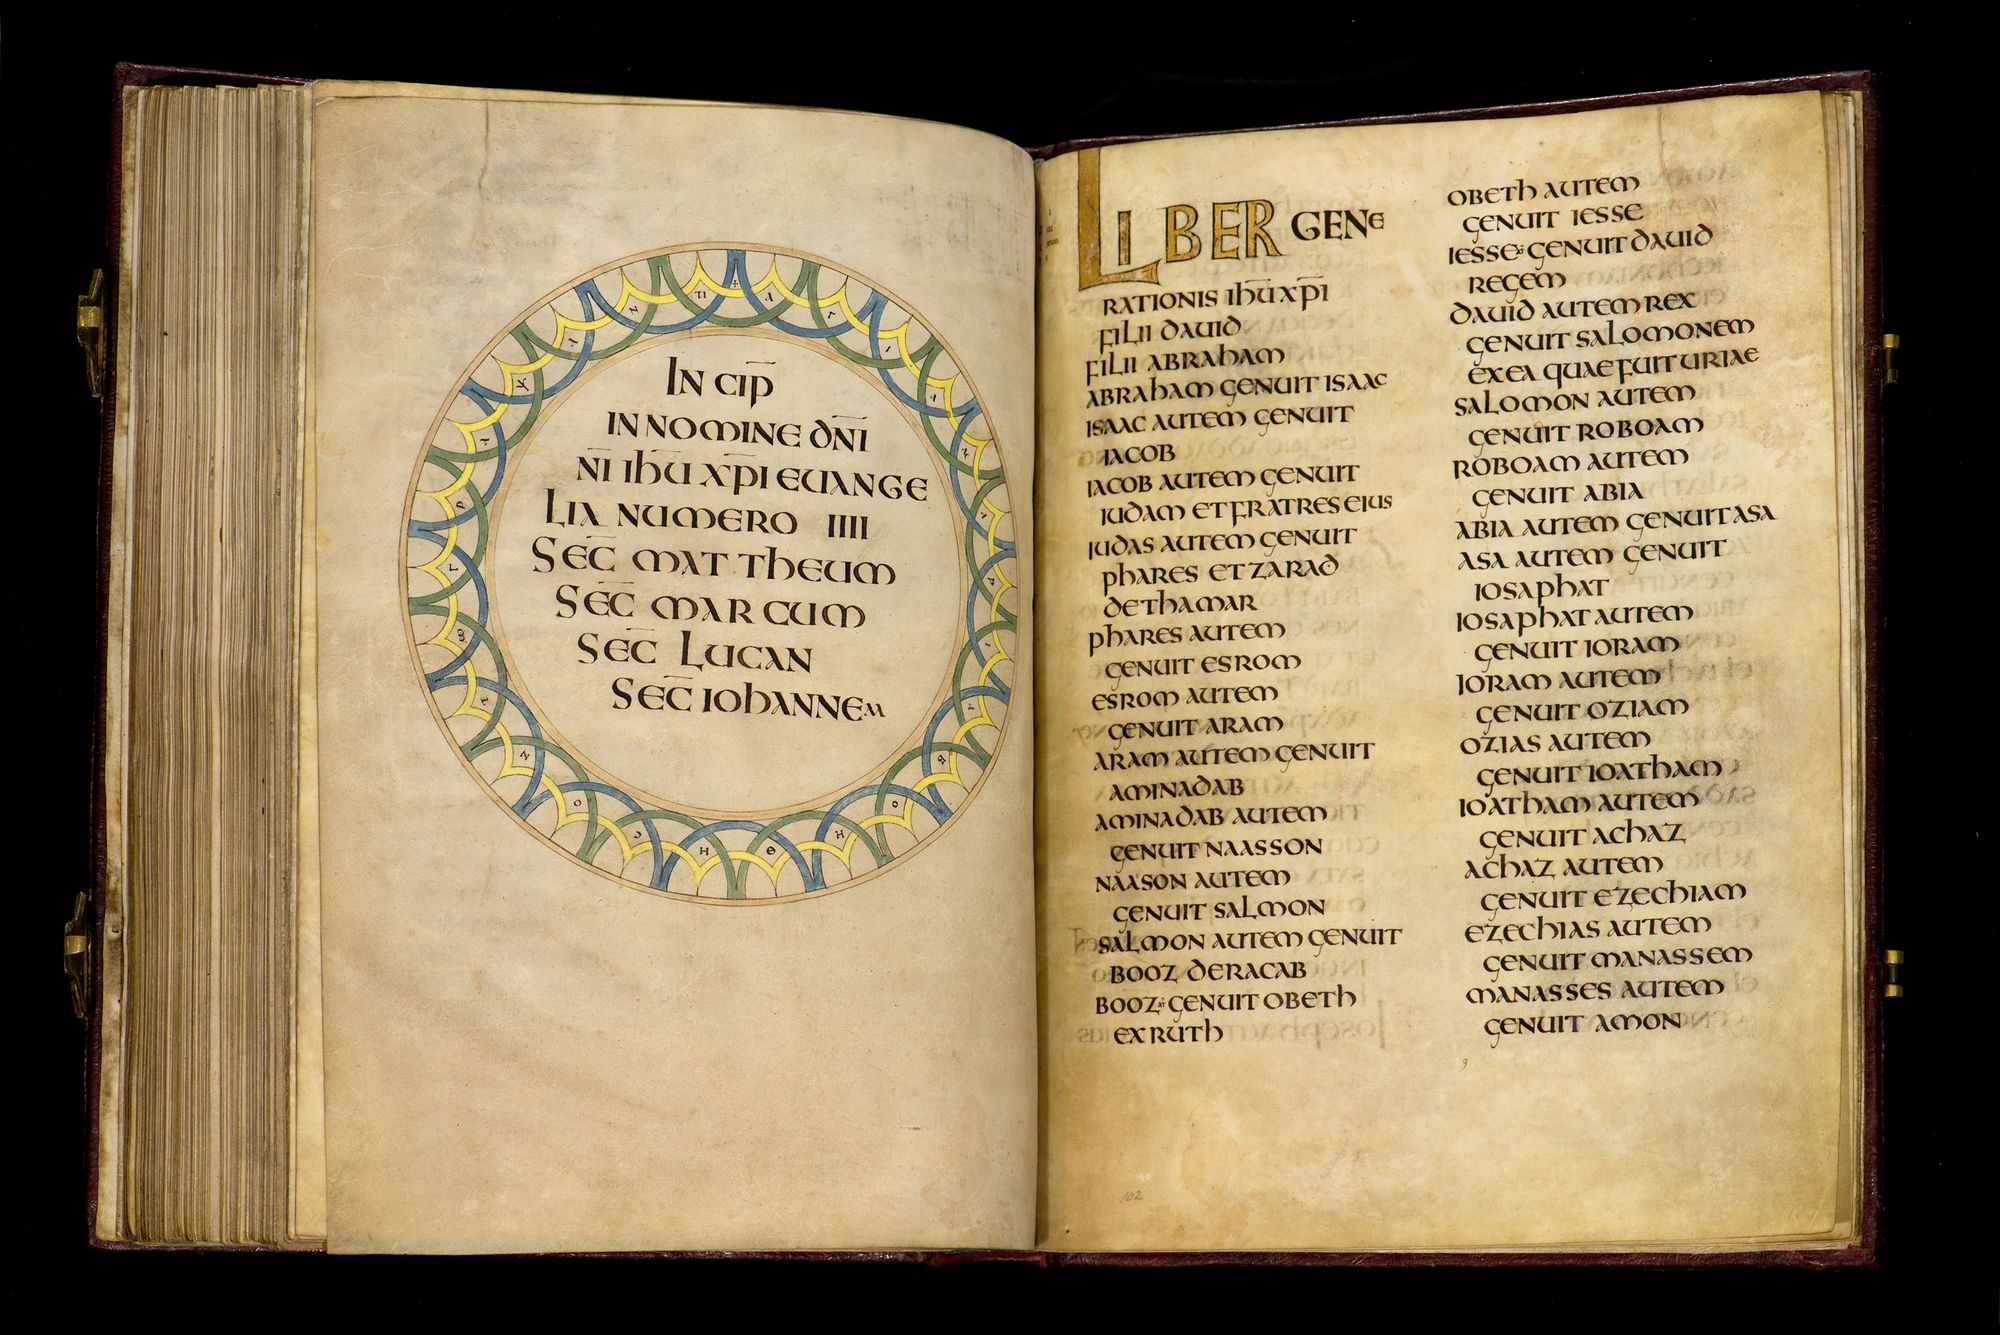 IN CIP̄
IN NOMINE DN̄I
N̄I IHŪ XP̄I EUANGE
LIA NUMERO IIII
SEC̄ MATTHEUM
SEC̄ MARCUM
SEC̄ LUCAN
SEC̄ IOHANNEM
LIBER GENE
RATIONIS IHŪ XP̄I
FILII DAUID
FILII ABRAHAM
ABRAHAM GENUIT ISAAC
ISAAC AUTEM GENUIT
IACOB
IACOB AUTEM GENUIT
IUDAM ET FRATRES EIUS
IUDAS AUTEM GENUIT
PHARES ET ZARAD
DE THAMAR
PHARES AUTEM
GENUIT ESROM
ESROM AUTEM
GENUIT ARAM
ARAM AUTEM GENUIT
AMINADAB
AMINADAB AUTEM
GENUIT NAASSON
NAASON AUTEM
GENUIT SALMON
SALMON AUTEM GENUIT
BOOZ DE RACAB
BOOZ GENUIT OBETH
EX RUTH
OBETH AUTEM
GENUIT IESSE
IESSE GENUIT DAUID
REGEM
DAUID AUTEM REX
GENUIT SALOMONEM
EX EA QUAE FUIT URIAE
SALOMON AUTEM
GENUIT ROBOAM
ROBOAM AUTEM
GENUIT ABIA
ABIA AUTEM GENUIT ASA
ASA AUTEM GENUIT
IOSAPHAT
IOSAPHAT AUTEM
GENUIT IORAM
IORAM AUTEM
GENUIT OZIAM
OZIAS AUTEM
GENUIT IOATHAM
IOATHAM AUTEM
GENUIT ACHAZ
ACHAZ AUTEM
GENUIT EZECHIAM
EZECHIAS AUTEM
GENUIT MANASSEM
MANASSES AUTEM
GENUIT AMON
102